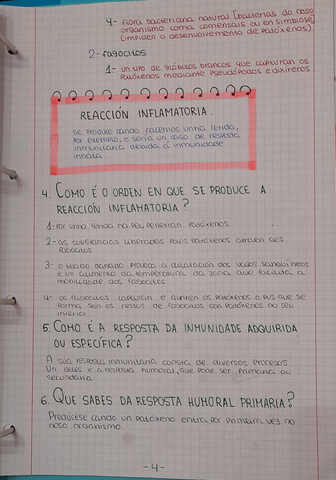 4- Flora bacteriana natural [bacterias do noso
organismo como comensais ou en simbiose]
(impiden o desenvolvemento de patóxenos)
2- FAGOCITOS
1- un tipo de glóbulos brancos que capturan os
patóxenos mediante pseudópodos e dixírenos
REACCIÓN INFLAMATORIA.
Se produce cando facemos unha ferida,
por exemplo, e sería un caso de resposta
inmunitaria debida á inmunidade
innata
4. COMO É O ORDEN EN QUE SE PRODUCE A
REACCIÓN INFLAMATORIA?
1- por unha ferida na pel penetran patóxenos
2- as substancias liberadas polos patóxenos atraen aos
fagocitos
3- o tecido danado provoca a dilatación dos vasos sanguíneos
e un aumento da temperatura da zona que facilita a
mobilidade dos fagocitos
4- os fagocitos capturan e dixiren os patóxenos o pus que se
forma son os restos de fagocitos con patóxenos no seu
interior
5. COMO É A RESPOSTA DA INMUNIDADE ADQUIRIDA
OU ESPECÍFICA?
A súa resposta inmunitaria consta de diversos procesos
Un deles é a resposta humoral, que pode ser primaria ou
secundaria
6. QUE SABES DA RESPOSTA HUMORAL PRIMARIA?
Prodúcese cando un patóxeno entra por primeira vez no
noso organismo.
-4-